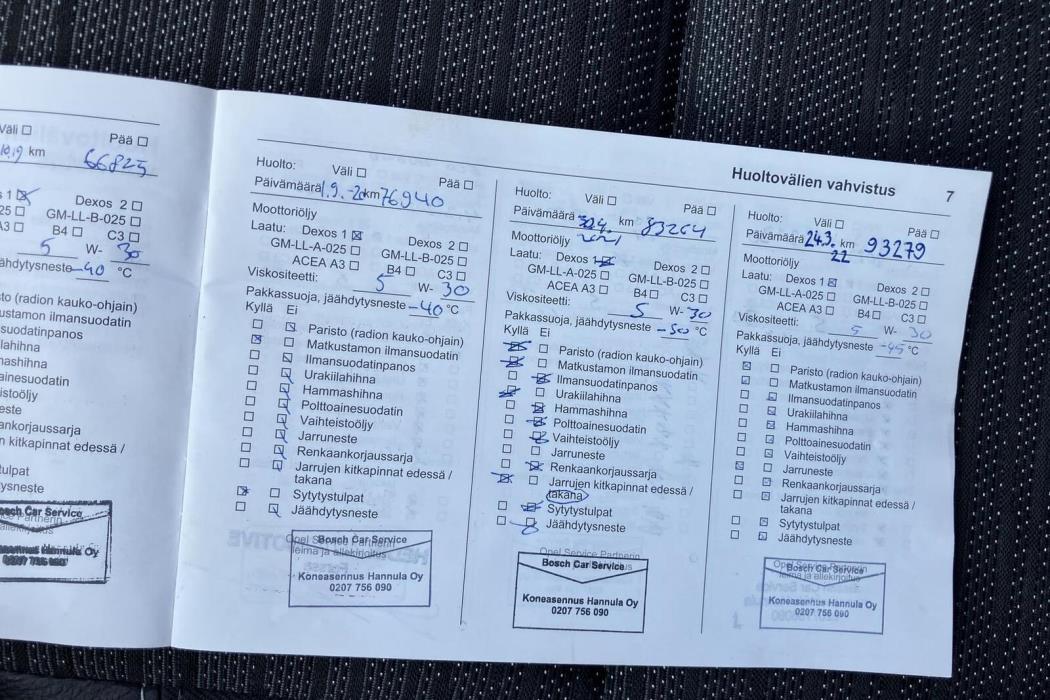 Väli ☐ Pää ☐
km 66825
Dexos 2 ☐
GM-LL-B-025 ☐
A3 ☐ B4 ☐ C3 ☐
5 W- 30
jäähdytysneste -40 °C
sto (radion kauko-ohjain)
ustamon ilmansuodatin
suodatinpanos
lahihna
mashihna
ainesuodatin
eistoöljy
este
aankorjaussarja
n kitkapinnat edessä /
tulpat
ysneste
Bosch Car Service
Koneasennus Hannula Oy
0207 756 090
Huoltovälien vahvistus 7
Huolto: Väli ☐ Pää ☐
Päivämäärä 1.9.-20 km 76940
Moottoriöljy
Laatu: Dexos 1 ☒ Dexos 2 ☐
GM-LL-A-025 ☐ GM-LL-B-025 ☐
ACEA A3 ☐ B4 ☐ C3 ☐
Viskositeetti: 5 W- 30
Pakkassuoja, jäähdytysneste -40 °C
Kyllä Ei
☐ ☒ Paristo (radion kauko-ohjain)
☒ ☐ Matkustamon ilmansuodatin
☐ ☒ Ilmansuodatinpanos
☐ ☒ Urakiilahihna
☐ ☒ Hammashihna
☐ ☒ Polttoainesuodatin
☐ ☒ Vaihteistoöljy
☐ ☒ Jarruneste
☐ ☒ Renkaankorjaussarja
☐ ☒ Jarrujen kitkapinnat edessä /
takana
☒ ☐ Sytytystulpat
☐ ☒ Jäähdytysneste
Opel Service Partnerin
leima ja allekirjoitus
Bosch Car Service
Koneasennus Hannula Oy
0207 756 090
Huolto: Väli ☐ Pää ☐
Päivämäärä 30.4. km 83264
Moottoriöljy 2021
Laatu: Dexos 1 ☒ Dexos 2 ☐
GM-LL-A-025 ☐ GM-LL-B-025 ☐
ACEA A3 ☐ B4 ☐ C3 ☐
Viskositeetti: 5 W- 30
Pakkassuoja, jäähdytysneste -50 °C
Kyllä Ei
☒ ☐ Paristo (radion kauko-ohjain)
☒ ☐ Matkustamon ilmansuodatin
☐ ☒ Ilmansuodatinpanos
☒ ☐ Urakiilahihna
☐ ☒ Hammashihna
☐ ☒ Polttoainesuodatin
☐ ☒ Vaihteistoöljy
☐ ☐ Jarruneste
☐ ☒ Renkaankorjaussarja
☒ ☐ Jarrujen kitkapinnat edessä /
takana
☐ ☒ Sytytystulpat
☐ ☒ Jäähdytysneste
Opel Service Partnerin
Bosch Car Service
Koneasennus Hannula Oy
0207 756 090
Huolto: Väli ☐ Pää ☐
Päivämäärä 24.3. km 93279
22
Moottoriöljy
Laatu: Dexos 1 ☒ Dexos 2 ☐
GM-LL-A-025 ☐ GM-LL-B-025 ☐
ACEA A3 ☐ B4 ☐ C3 ☐
Viskositeetti: 5 W- 30
Pakkassuoja, jäähdytysneste -45 °C
Kyllä Ei
☒ ☐ Paristo (radion kauko-ohjain)
☒ ☐ Matkustamon ilmansuodatin
☐ ☒ Ilmansuodatinpanos
☐ ☒ Urakiilahihna
☐ ☒ Hammashihna
☐ ☒ Polttoainesuodatin
☐ ☒ Vaihteistoöljy
☒ ☐ Jarruneste
☐ ☒ Renkaankorjaussarja
☐ ☒ Jarrujen kitkapinnat edessä /
takana
☐ ☒ Sytytystulpat
☐ ☒ Jäähdytysneste
Opel Service Partnerin
leima ja allekirjoitus
Bosch Car Service
Koneasennus Hannula Oy
0207 756 090